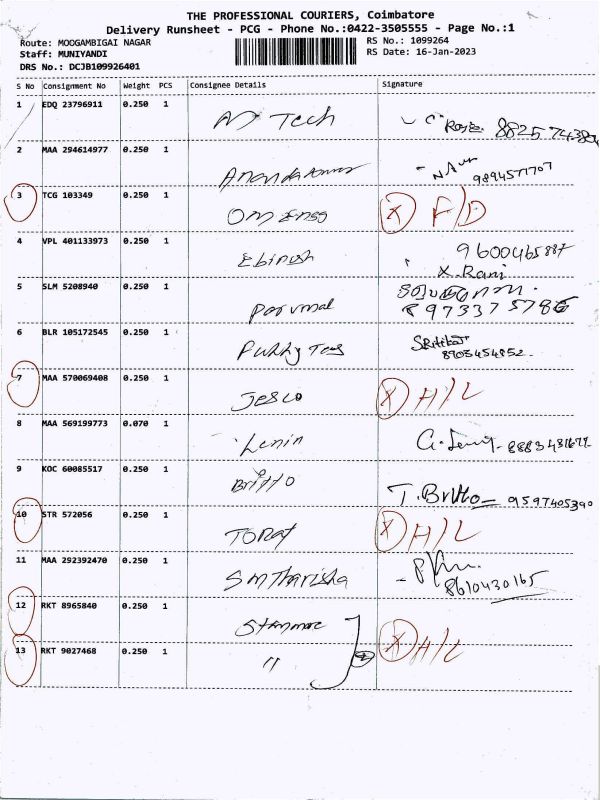 THE PROFESSIONAL COURIERS, Coimbatore
Delivery Runsheet - PCG - Phone No.:0422-3505555 - Page No.:1
Route: MOOGAMBIGAI NAGAR
RS No.: 1099264
Staff: MUNIYANDI
RS Date: 16-Jan-2023
DRS No.: DCJB109926401
S No Consignment No Weight PCS Consignee Details Signature
1 EDQ 23796911 0.250 1 Tech
2 MAA 294614977 0.250 1 9894577707
3 TCG 103349 0.250 1 X F/D
4 VPL 401133973 0.250 1 Ebinesh 9600465887
X.Rani
5 SLM 5208940 0.250 1 Perumal
8973375786
6 BLR 105172545 0.250 1
8903454852
7 MAA 570069408 0.250 1 Jesco X H/L
8 MAA 569199773 0.070 1 Lenin
9 KOC 60085517 0.250 1 Britto T. Britto 9597405390
10 STR 572056 0.250 1 X H/L
11 MAA 292392470 0.250 1 8610430165
12 RKT 8965840 0.250 1 Stanmore X H/L
13 RKT 9027468 0.250 1 "